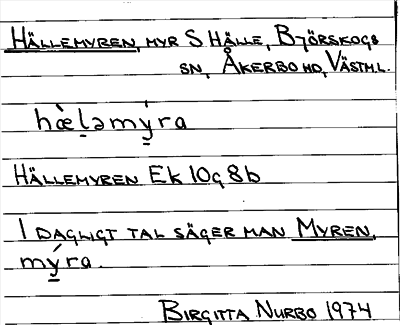 HÄLLEMYREN, MYR S HÄLLE, BJÖRSKOGS
SN, ÅKERBO HD, VÄSTML.
hæ̀l̠əmý̠ra
HÄLLEMYREN EK 10g 8b
I DAGLIGT TAL SÄGER MAN MYREN,
mý̠ra.
BIRGITTA NURBO 1974